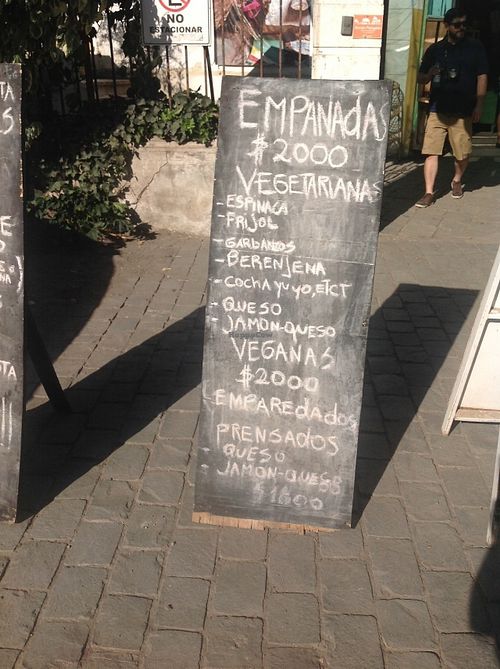 NO
ESTACIONAR
EMPANADAS
$2000
VEGETARIANAS
- ESPINACA
- FRIJOL
- GARBANZOS
- BERENJENA
- COCHAYUYO, ETCT
- QUESO
- JAMON-QUESO
VEGANAS
$2000
EMPAREDADOS
PRENSADOS
- QUESO
- JAMON-QUESO
$1600